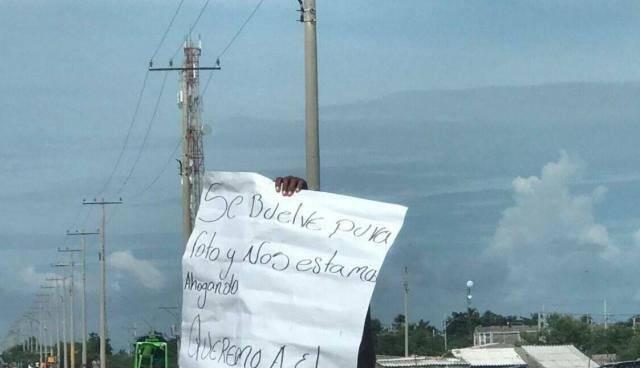 Se Buelve pura
foto y Nos estamo
Ahogando
QUEREMO A El